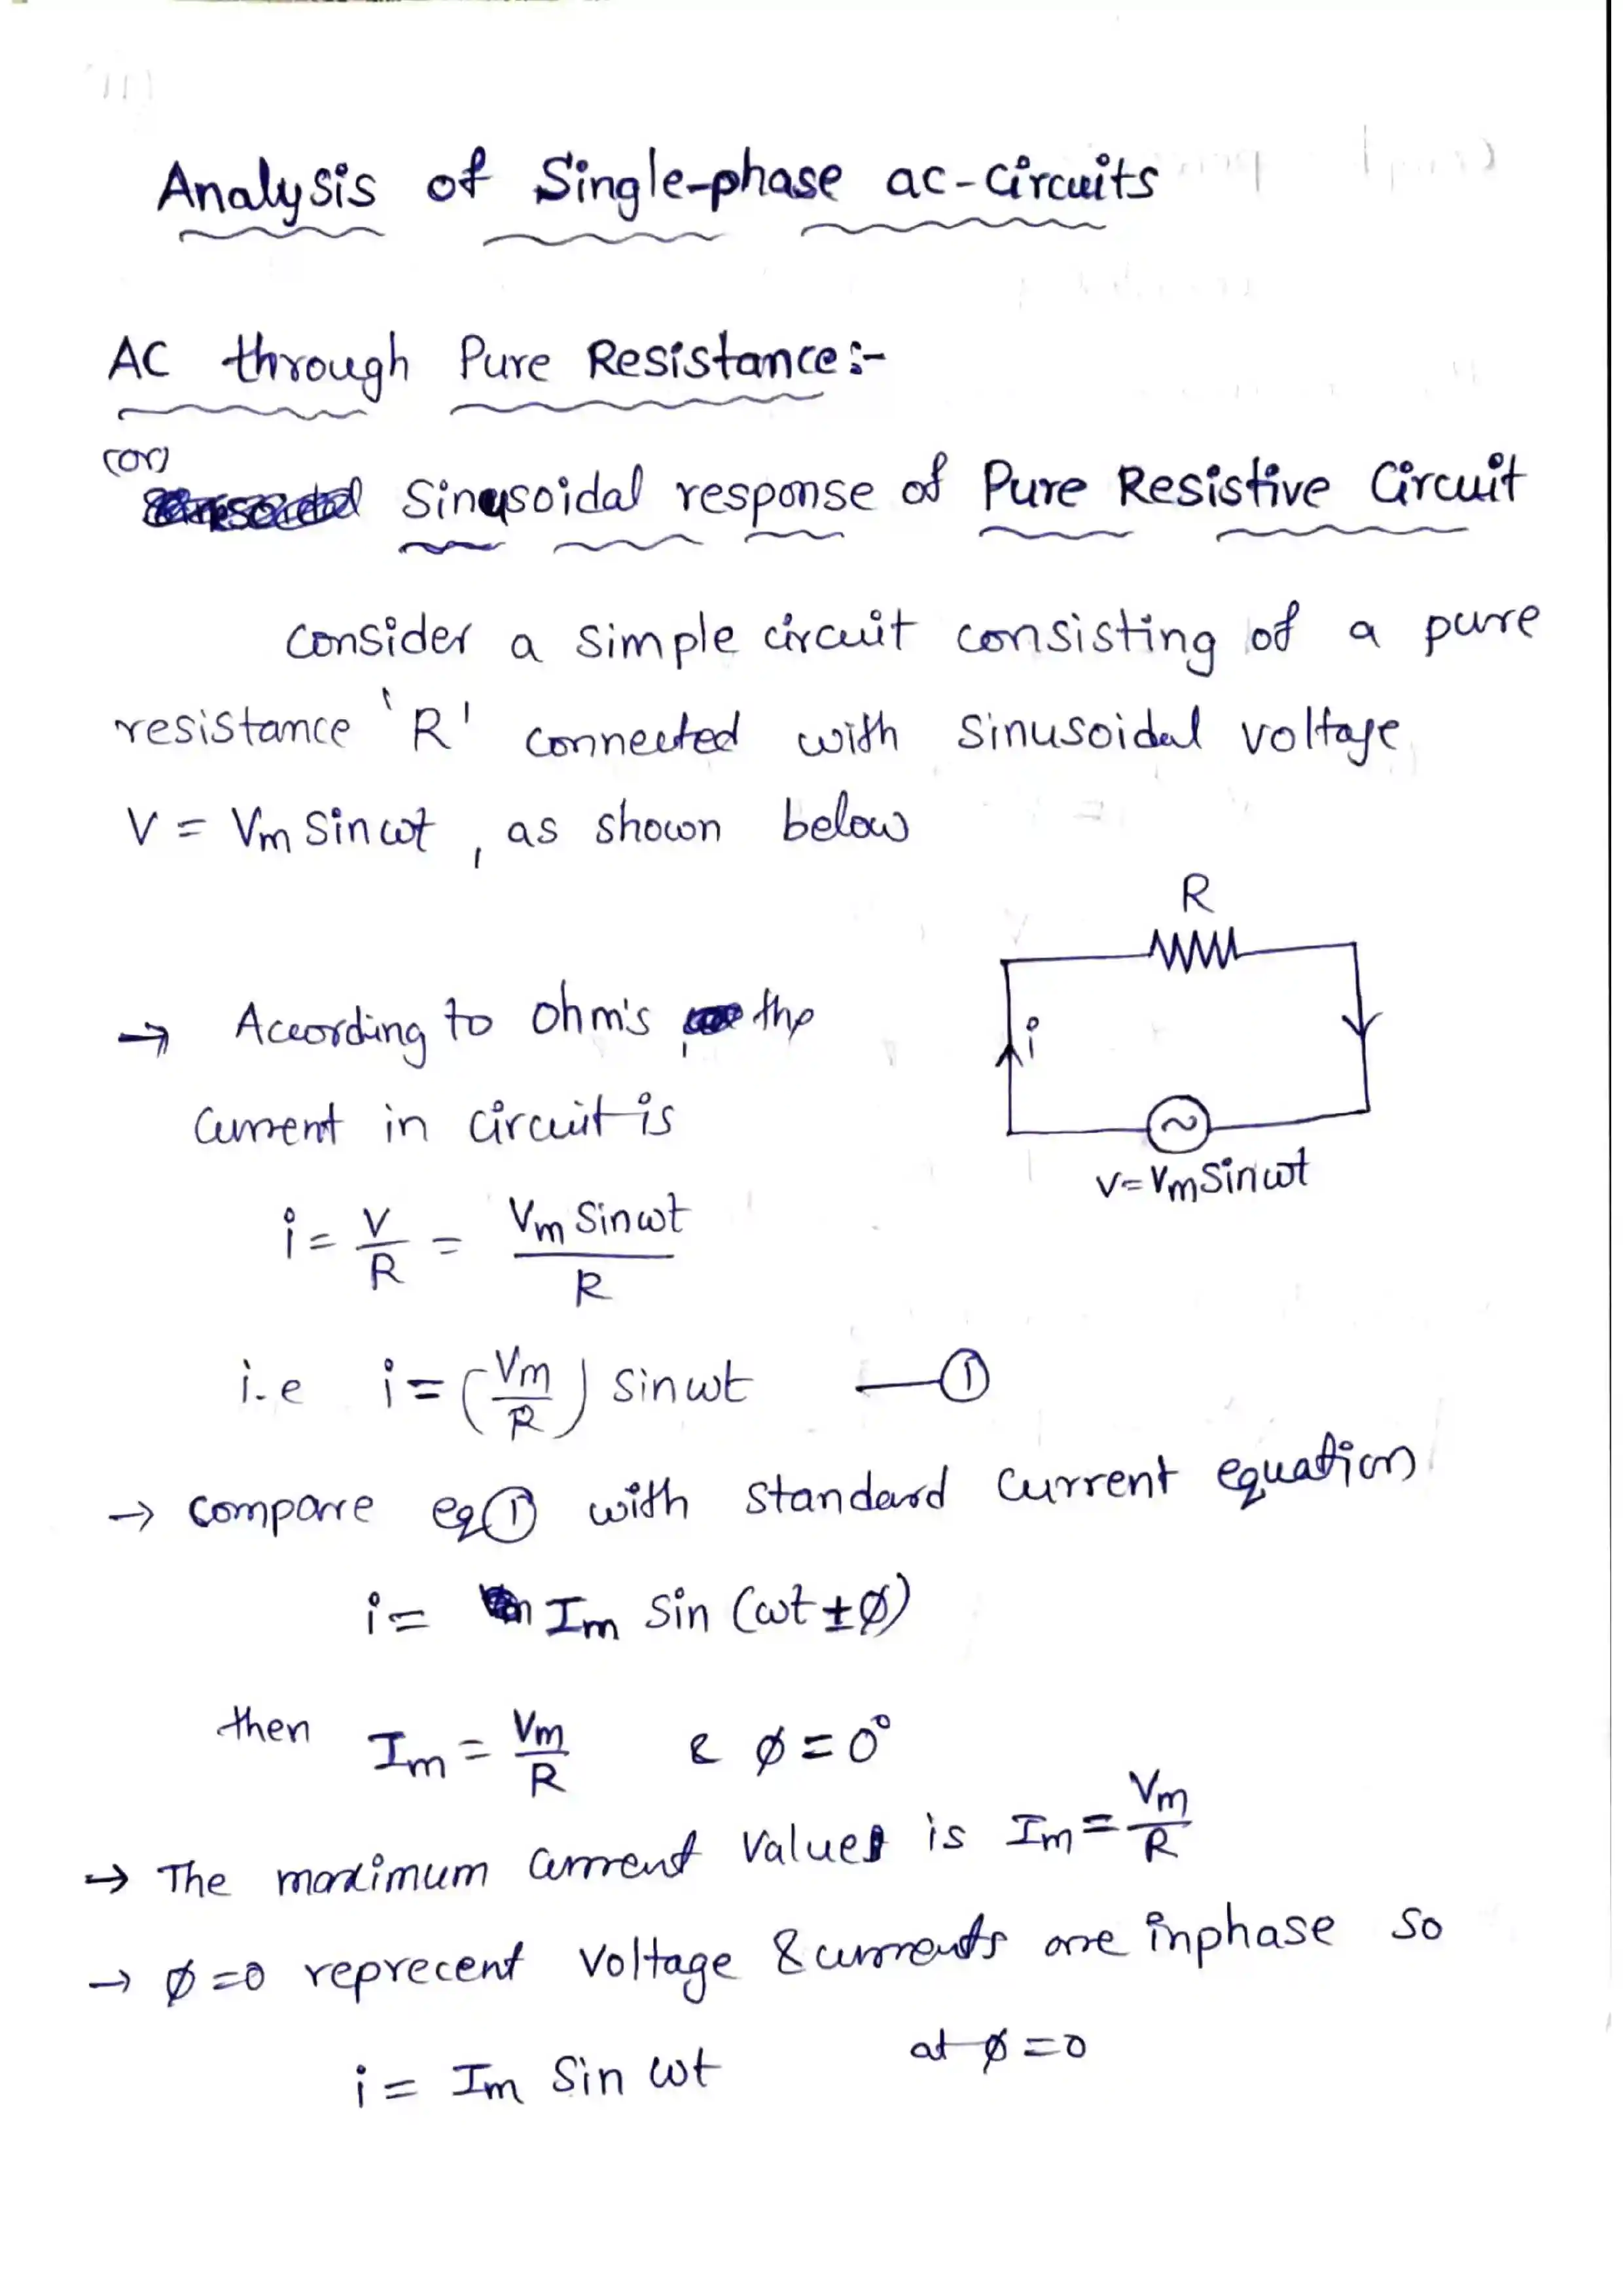 Analysis of Single-phase ac-circuits
AC through Pure Resistance:-
(or)
Sinusoidal response of Pure Resistive Circuit
Consider a simple circuit consisting of a pure
resistance 'R' connected with sinusoidal voltage
V = Vm Sin ωt, as shown below
R
i
V=VmSinωt
→ According to ohm's the
Current in circuit is
i = V/R = Vm Sinωt/R
i.e i = (Vm/R) sinωt —①
→ compare eq① with standard current equation
i = Im Sin (ωt ± Ø)
then Im = Vm/R & Ø = 0°
→ The maximum current Value is Im = Vm/R
→ Ø=0 reprecent Voltage & currents are inphase so
i = Im Sin ωt at Ø=0